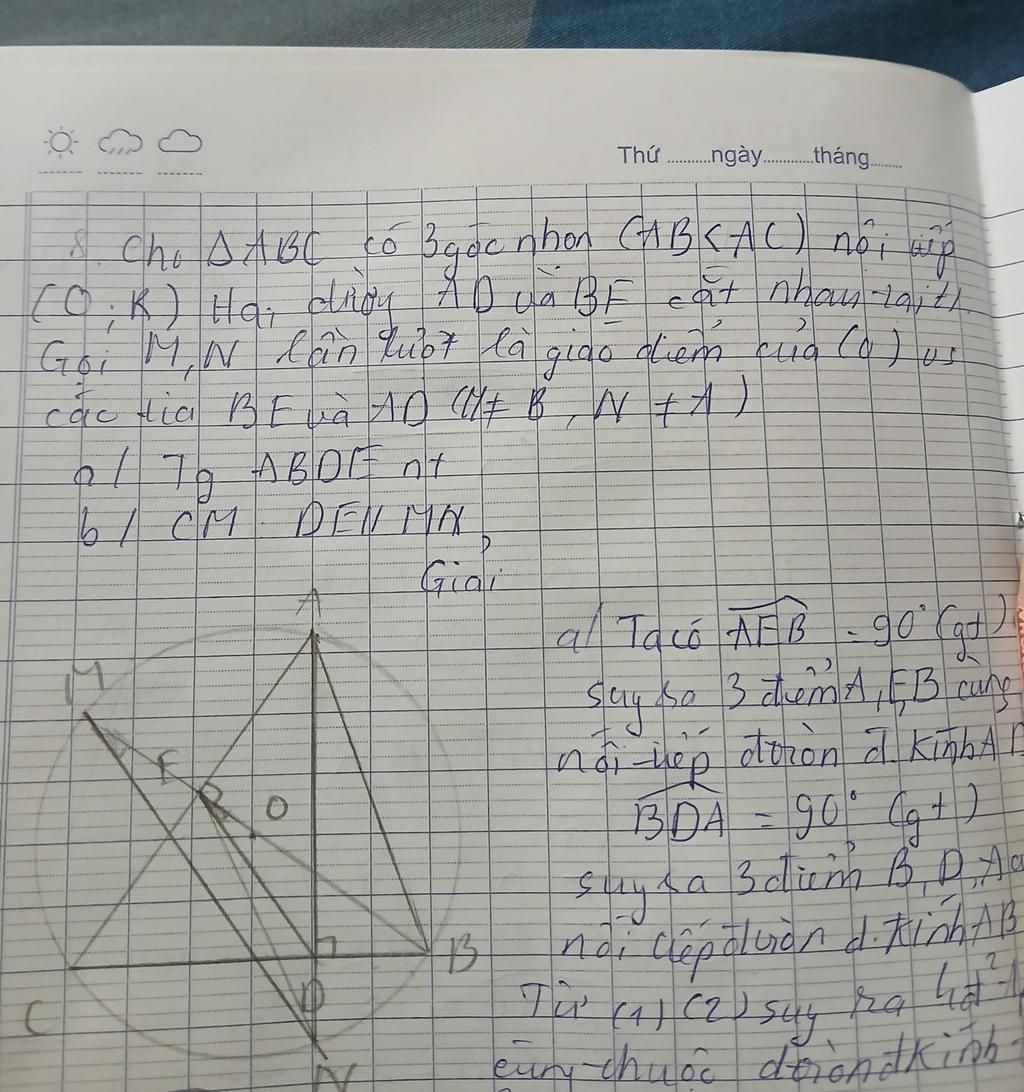 Thứ ..........ngày............tháng........
8. Cho ΔABC có 3 góc nhọn (AB < AC) nội tiếp
(O; R) Hai đường AD và BE cắt nhau tại H.
Gọi M, N lần lượt là giao điểm của (O) vs
các tia BE và AD (M ≠ B, N ≠ A)
a/ Tg ABDE nt
b/ CM DE // MN
Giải
a/ Ta có AEB = 90° (gt)
suy ra 3 điểm A, E, B cùng
nội tiếp đ tròn đ. kính AB
BDA = 90° (gt)
suy ra 3 điểm B, D, A
nội tiếp đ tròn đ. kính AB
Từ (1) (2) suy ra
cùng thuộc đ tròn đ kính
A
M
E
O
B
D
C
N